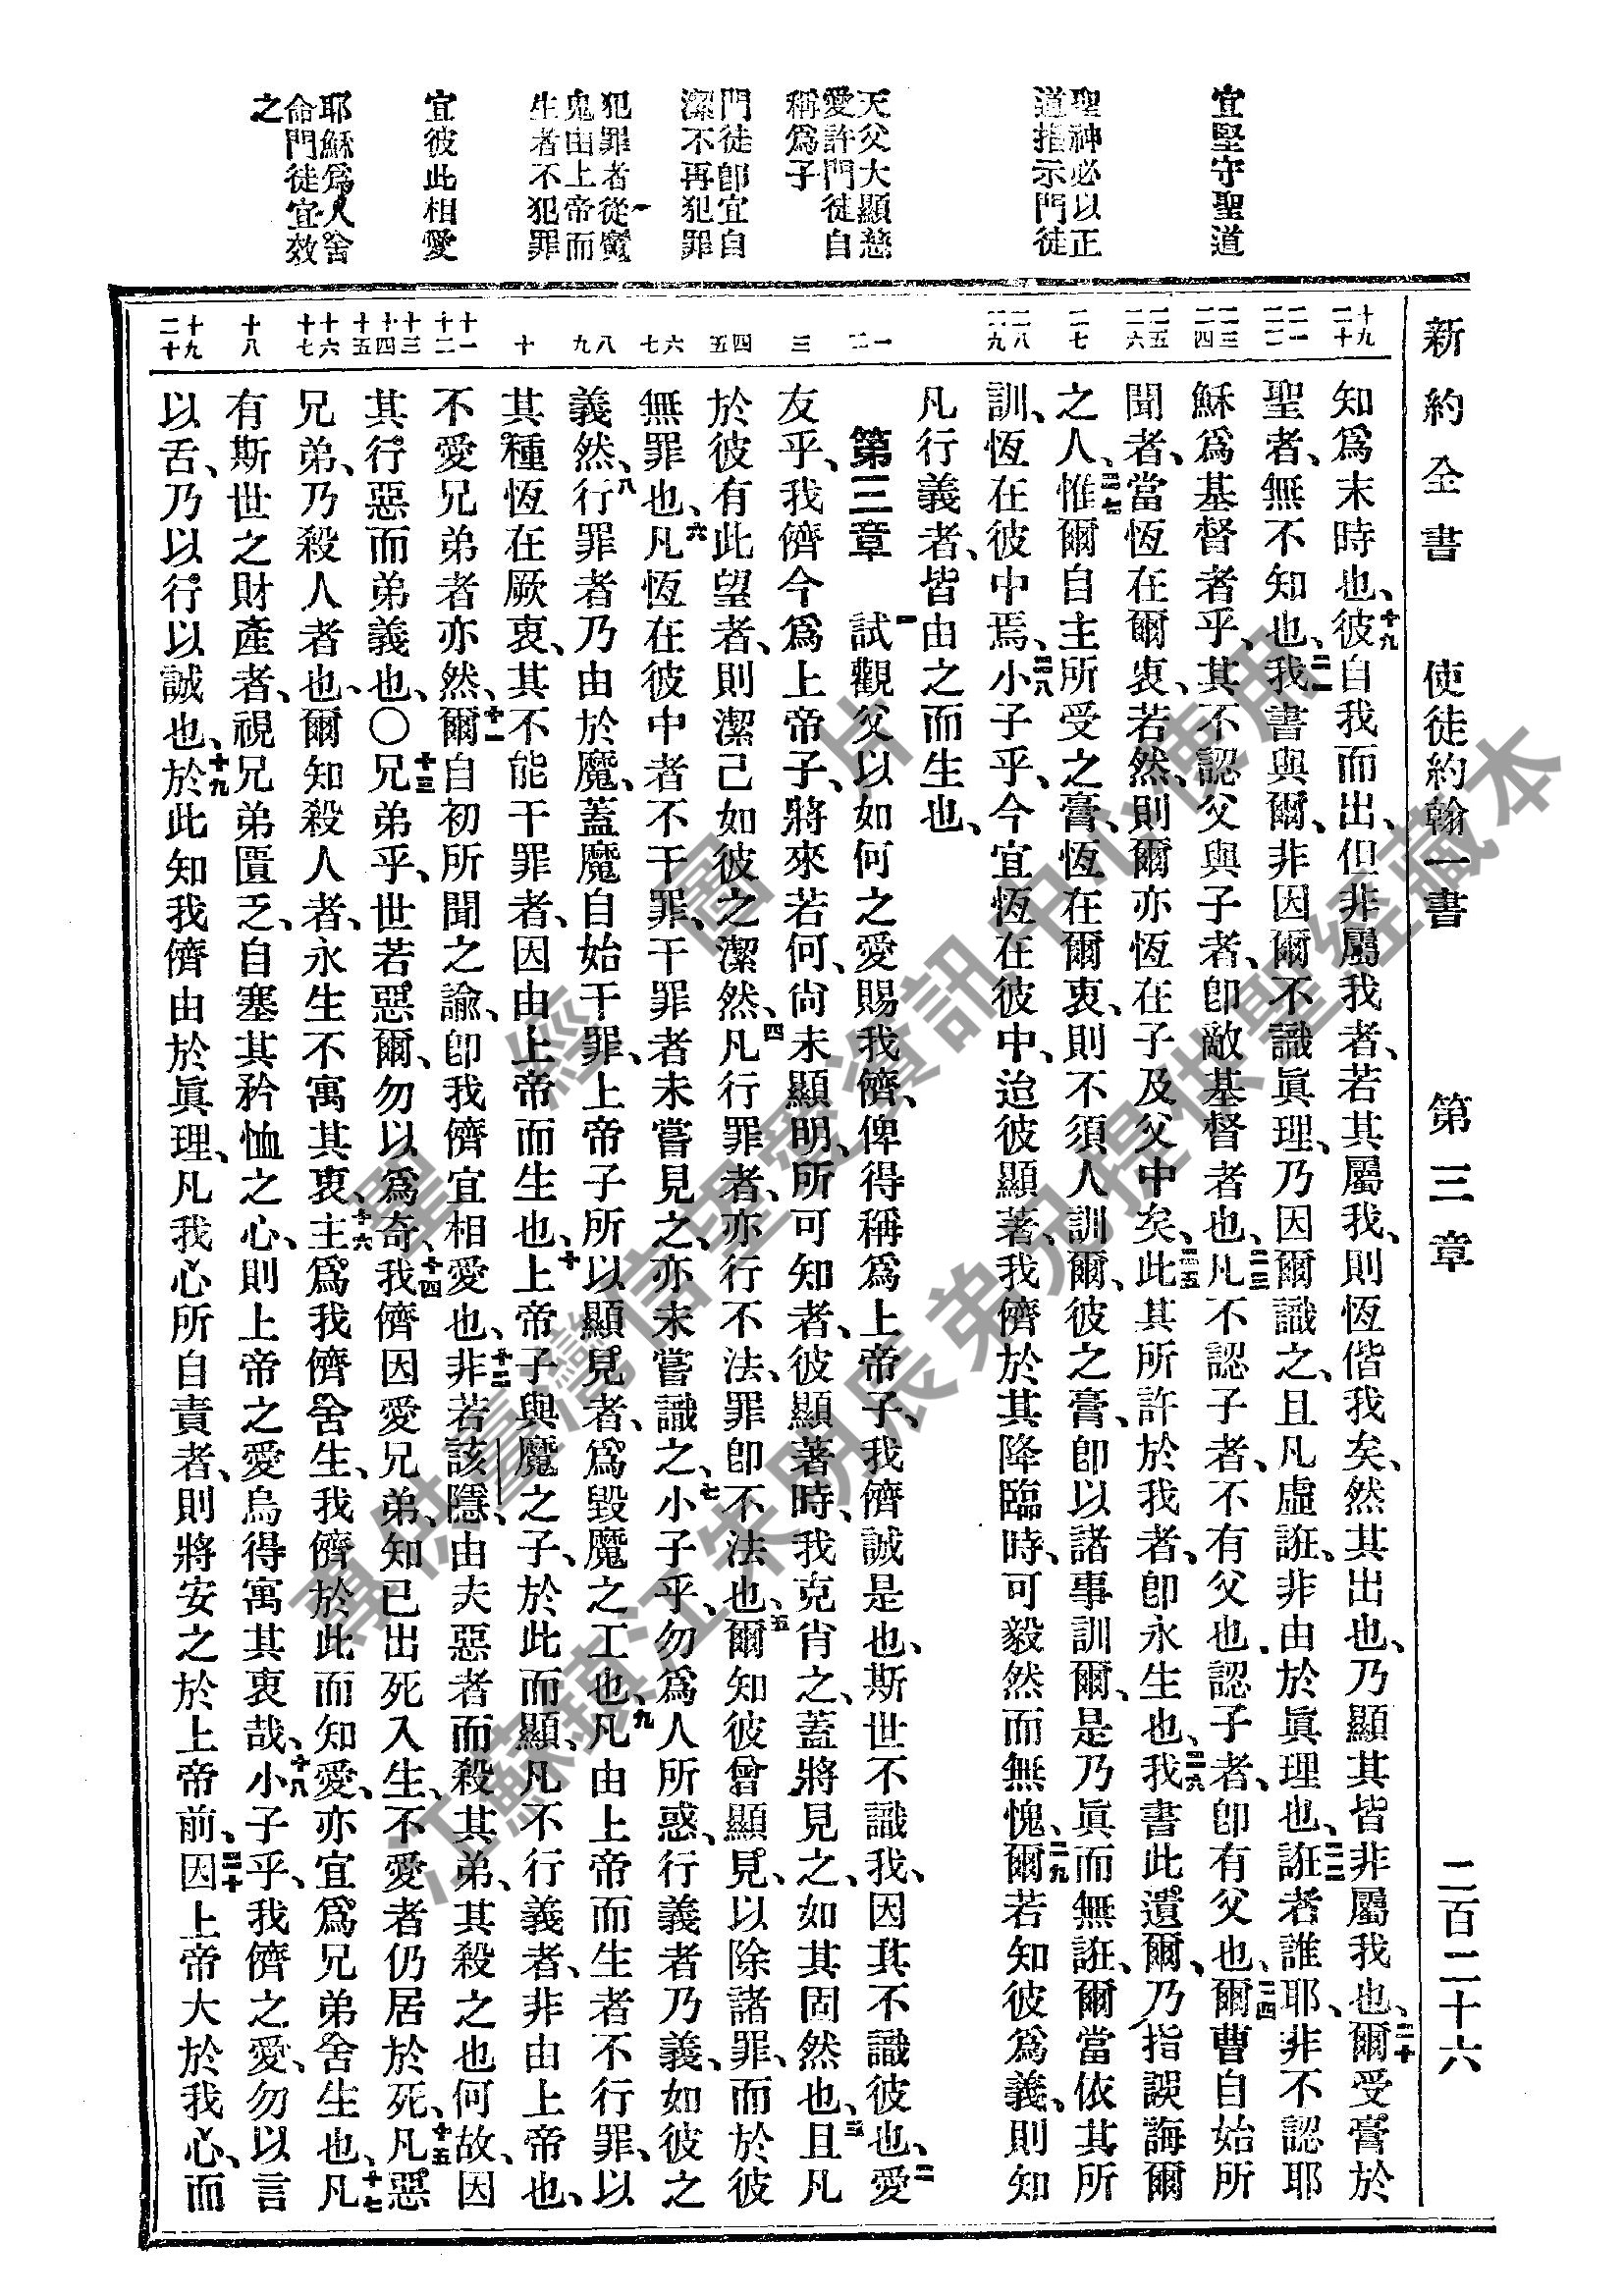 新約全書　使徒約翰一書　第三章　二百二十六
宜堅守聖道
聖神必以正
道指示門徒
天父大顯慈
愛許門徒自
稱爲子
門徒卽宜自
潔不再犯罪
犯罪者從魔
鬼由上帝而
生者不犯罪
宜彼此相愛
耶穌爲人舍
命門徒宜效
之
十九 二十
二一 二二
二三 二四
二五 二六
二七
二八 二九
一 二
三
四 五
六 七
八 九
十
十一 十二
十三 十四 十五
十六 十七
十八
十九 二十
知爲末時也、十九彼自我而出、但非屬我者、若其屬我、則恆偕我矣、然其出也、乃顯其皆非屬我也、二十爾受膏於
聖者、無不知也、二一我書與爾、非因爾不識眞理、乃因爾識之、且凡虛誑、非由於眞理也、二二誑者誰耶、非不認耶
穌爲基督者乎、其不認父與子者、卽敵基督者也、二三凡不認子者、不有父也、認子者、卽有父也、二四爾曹自始所
聞者、當恆在爾衷、若然、則爾亦恆在子及父中矣、二五此其所許於我者、卽永生也、二六我書此遺爾、乃指誤誨爾
之人、二七惟爾自主所受之膏、恆在爾衷、則不須人訓爾、彼之膏、卽以諸事訓爾、是乃眞而無誑、爾當依其所
訓、恆在彼中焉、二八小子乎、今宜恆在彼中、迨彼顯著、我儕於其降臨時、可毅然而無愧、二九爾若知彼爲義、則知
凡行義者、皆由之而生也、
第三章　一試觀父以如何之愛賜我儕、俾得稱爲上帝子、我儕誠是也、斯世不識我、因其不識彼也、二愛
友乎、我儕今爲上帝子、將來若何、尚未顯明、所可知者、彼顯著時、我克肖之、蓋將見之、如其固然也、三且凡
於彼有此望者、則潔己如彼之潔然、四凡行罪者、亦行不法、罪卽不法也、五爾知彼曾顯見、以除諸罪、而於彼
無罪也、六凡恆在彼中者不干罪、干罪者未嘗見之、亦未嘗識之、七小子乎、勿爲人所惑、行義者乃義、如彼之
義然、八行罪者乃由於魔、蓋魔自始干罪、上帝子所以顯見者、爲毀魔之工也、九凡由上帝而生者不行罪、以
其種恆在厥衷、其不能干罪者、因由上帝而生也、十上帝子與魔之子、於此而顯、凡不行義者、非由上帝也、
不愛兄弟者亦然、十一爾自初所聞之諭、卽我儕宜相愛也、十二非若該隱、由夫惡者而殺其弟、其殺之也何故、因
其行惡而弟義也、〇十三兄弟乎、世若惡爾、勿以爲奇、十四我儕因愛兄弟、知已出死入生、不愛者仍居於死、十五凡惡
兄弟、乃殺人者也、爾知殺人者、永生不寓其衷、十六主爲我儕舍生、我儕於此而知愛、亦宜爲兄弟舍生也、十七凡
有斯世之財產者、視兄弟匱乏、自塞其矜恤之心、則上帝之愛烏得寓其衷哉、十八小子乎、我儕之愛、勿以言
以舌、乃以行以誠也、十九於此知我儕由於眞理、凡我心所自責者、則將安之於上帝前、二十因上帝大於我心、而
聖經圖片
專供臺灣信望愛資訊中心使用
江蘇鎮江朱明辰弟兄提供聖經藏本